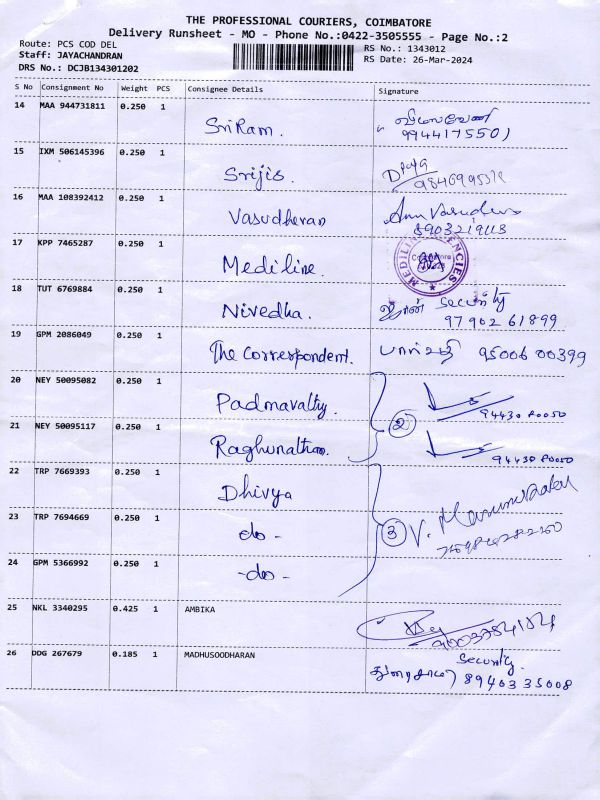 THE PROFESSIONAL COURIERS, COIMBATORE
Delivery Runsheet - MO - Phone No.:0422-3505555 - Page No.:2
Route: PCS COD DEL
Staff: JAYACHANDRAN
DRS No.: DCJB134301202
RS No.: 1343012
RS Date: 26-Mar-2024
S No Consignment No Weight PCS Consignee Details Signature
14 MAA 944731811 0.250 1 SriRam.
9944175501
15 IXM 506145396 0.250 1 Srijis.
16 MAA 108392412 0.250 1 Vasudhevan
8903219113
17 KPP 7465287 0.250 1 Mediline. MEDILINE AGENCIES
18 TUT 6769884 0.250 1 Nivedha. ஜான் Security
97902 61899
19 GPM 2086049 0.250 1 The Correspondent. 95006 00399
20 NEY 50095082 0.250 1 Padmavathy.
94430 80050
2
21 NEY 50095117 0.250 1 Raghunathan.
94430 80050
22 TRP 7669393 0.250 1 Dhivya
23 TRP 7694669 0.250 1 do - 3 V.
24 GPM 5366992 0.250 1 -do -
25 NKL 3340295 0.425 1 AMBIKA
26 DDG 267679 0.185 1 MADHUSOODHARAN Security.
துரைசாமி 89403 35008